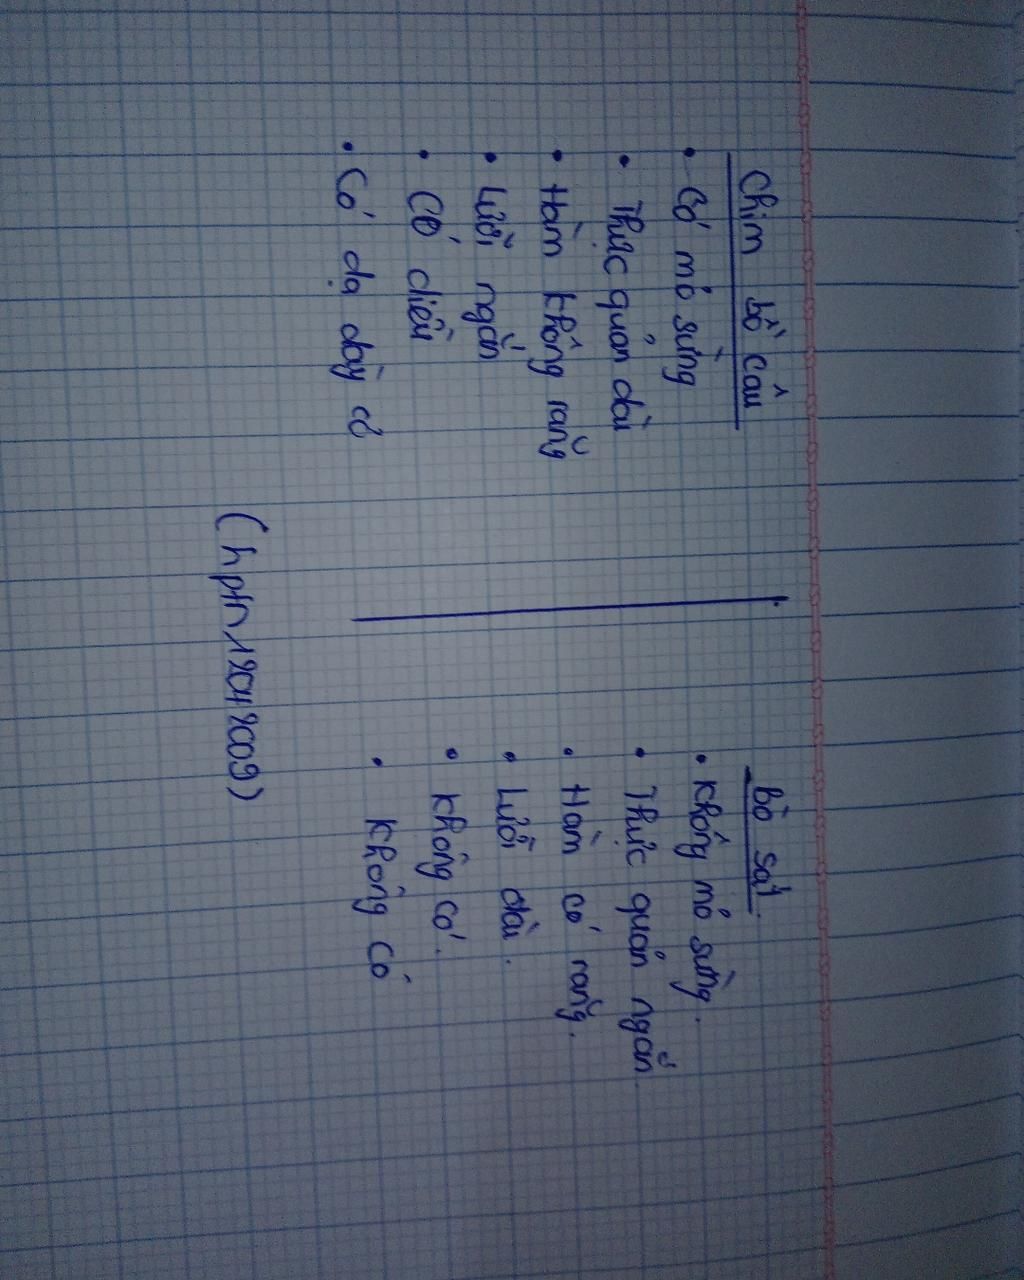 Chim bồ câu
• Có mỏ sừng
• Thực quản dài
• Hàm không răng
• Lưỡi ngắn
• Có diều
• Có dạ dày cơ
Bò sát
• Không mỏ sừng.
• Thực quản ngắn
• Hàm có răng.
• Lưỡi dài.
• Không có.
• Không có
(hptn12042009)